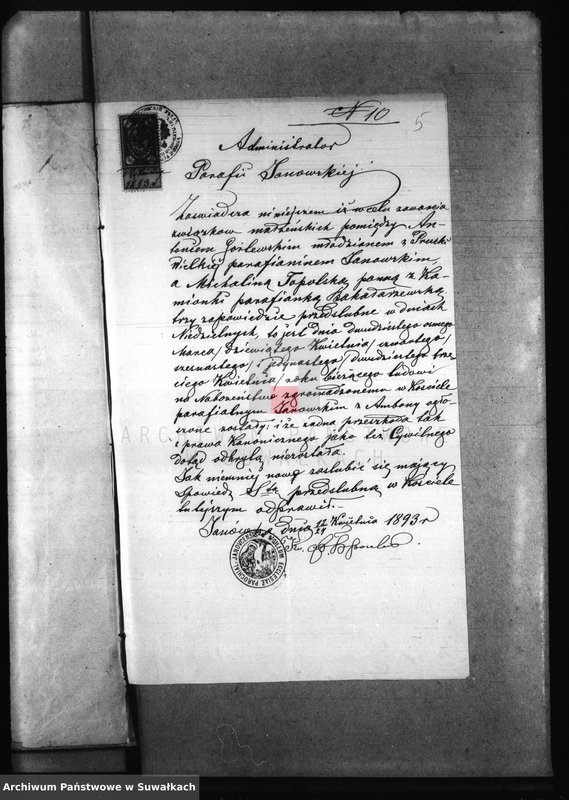 N 10
5
1893 r
Administrator
Parafii Janowskiej
Zaświadcza niniejszem iż w celu zawarcia
związkow małżeńskich pomiędzy An-
toniem Gorlewskim młodzianem z Pruski
Wielkiej parafianinem Janowskim,
a Michaliną Topolską panną z Ka-
mionki parafianką Bakałarzewską
trzy zapowiedzie przedslubne w dniach
Niedzielnych, to jest dnia dwudziestego osmego
Marca/ dziewiątego Kwietnia/ czwartego/
szesnastego/ i jedynastego/ dwudziestego trze-
ciego Kwietnia/ roku bieżącego ludowi
na Nabożenstwo zgromadzonemu w Kościele
parafialnym Janowskim z Ambony ogło-
szone zostały; i że żadna przeszkoda tak
z prawa Kanonicznego jako też Cywilnego
dotąd odkrytą nie została.
Jak niemniej nowo zaslubić się mający
Spowiedź Stą przedslubną w Kościele
tutejszym odprawił.–
Janówka dnia 12/24 Kwietnia 1893 r
X.
ARCHIWA
Archiwum Państwowe w Suwałkach